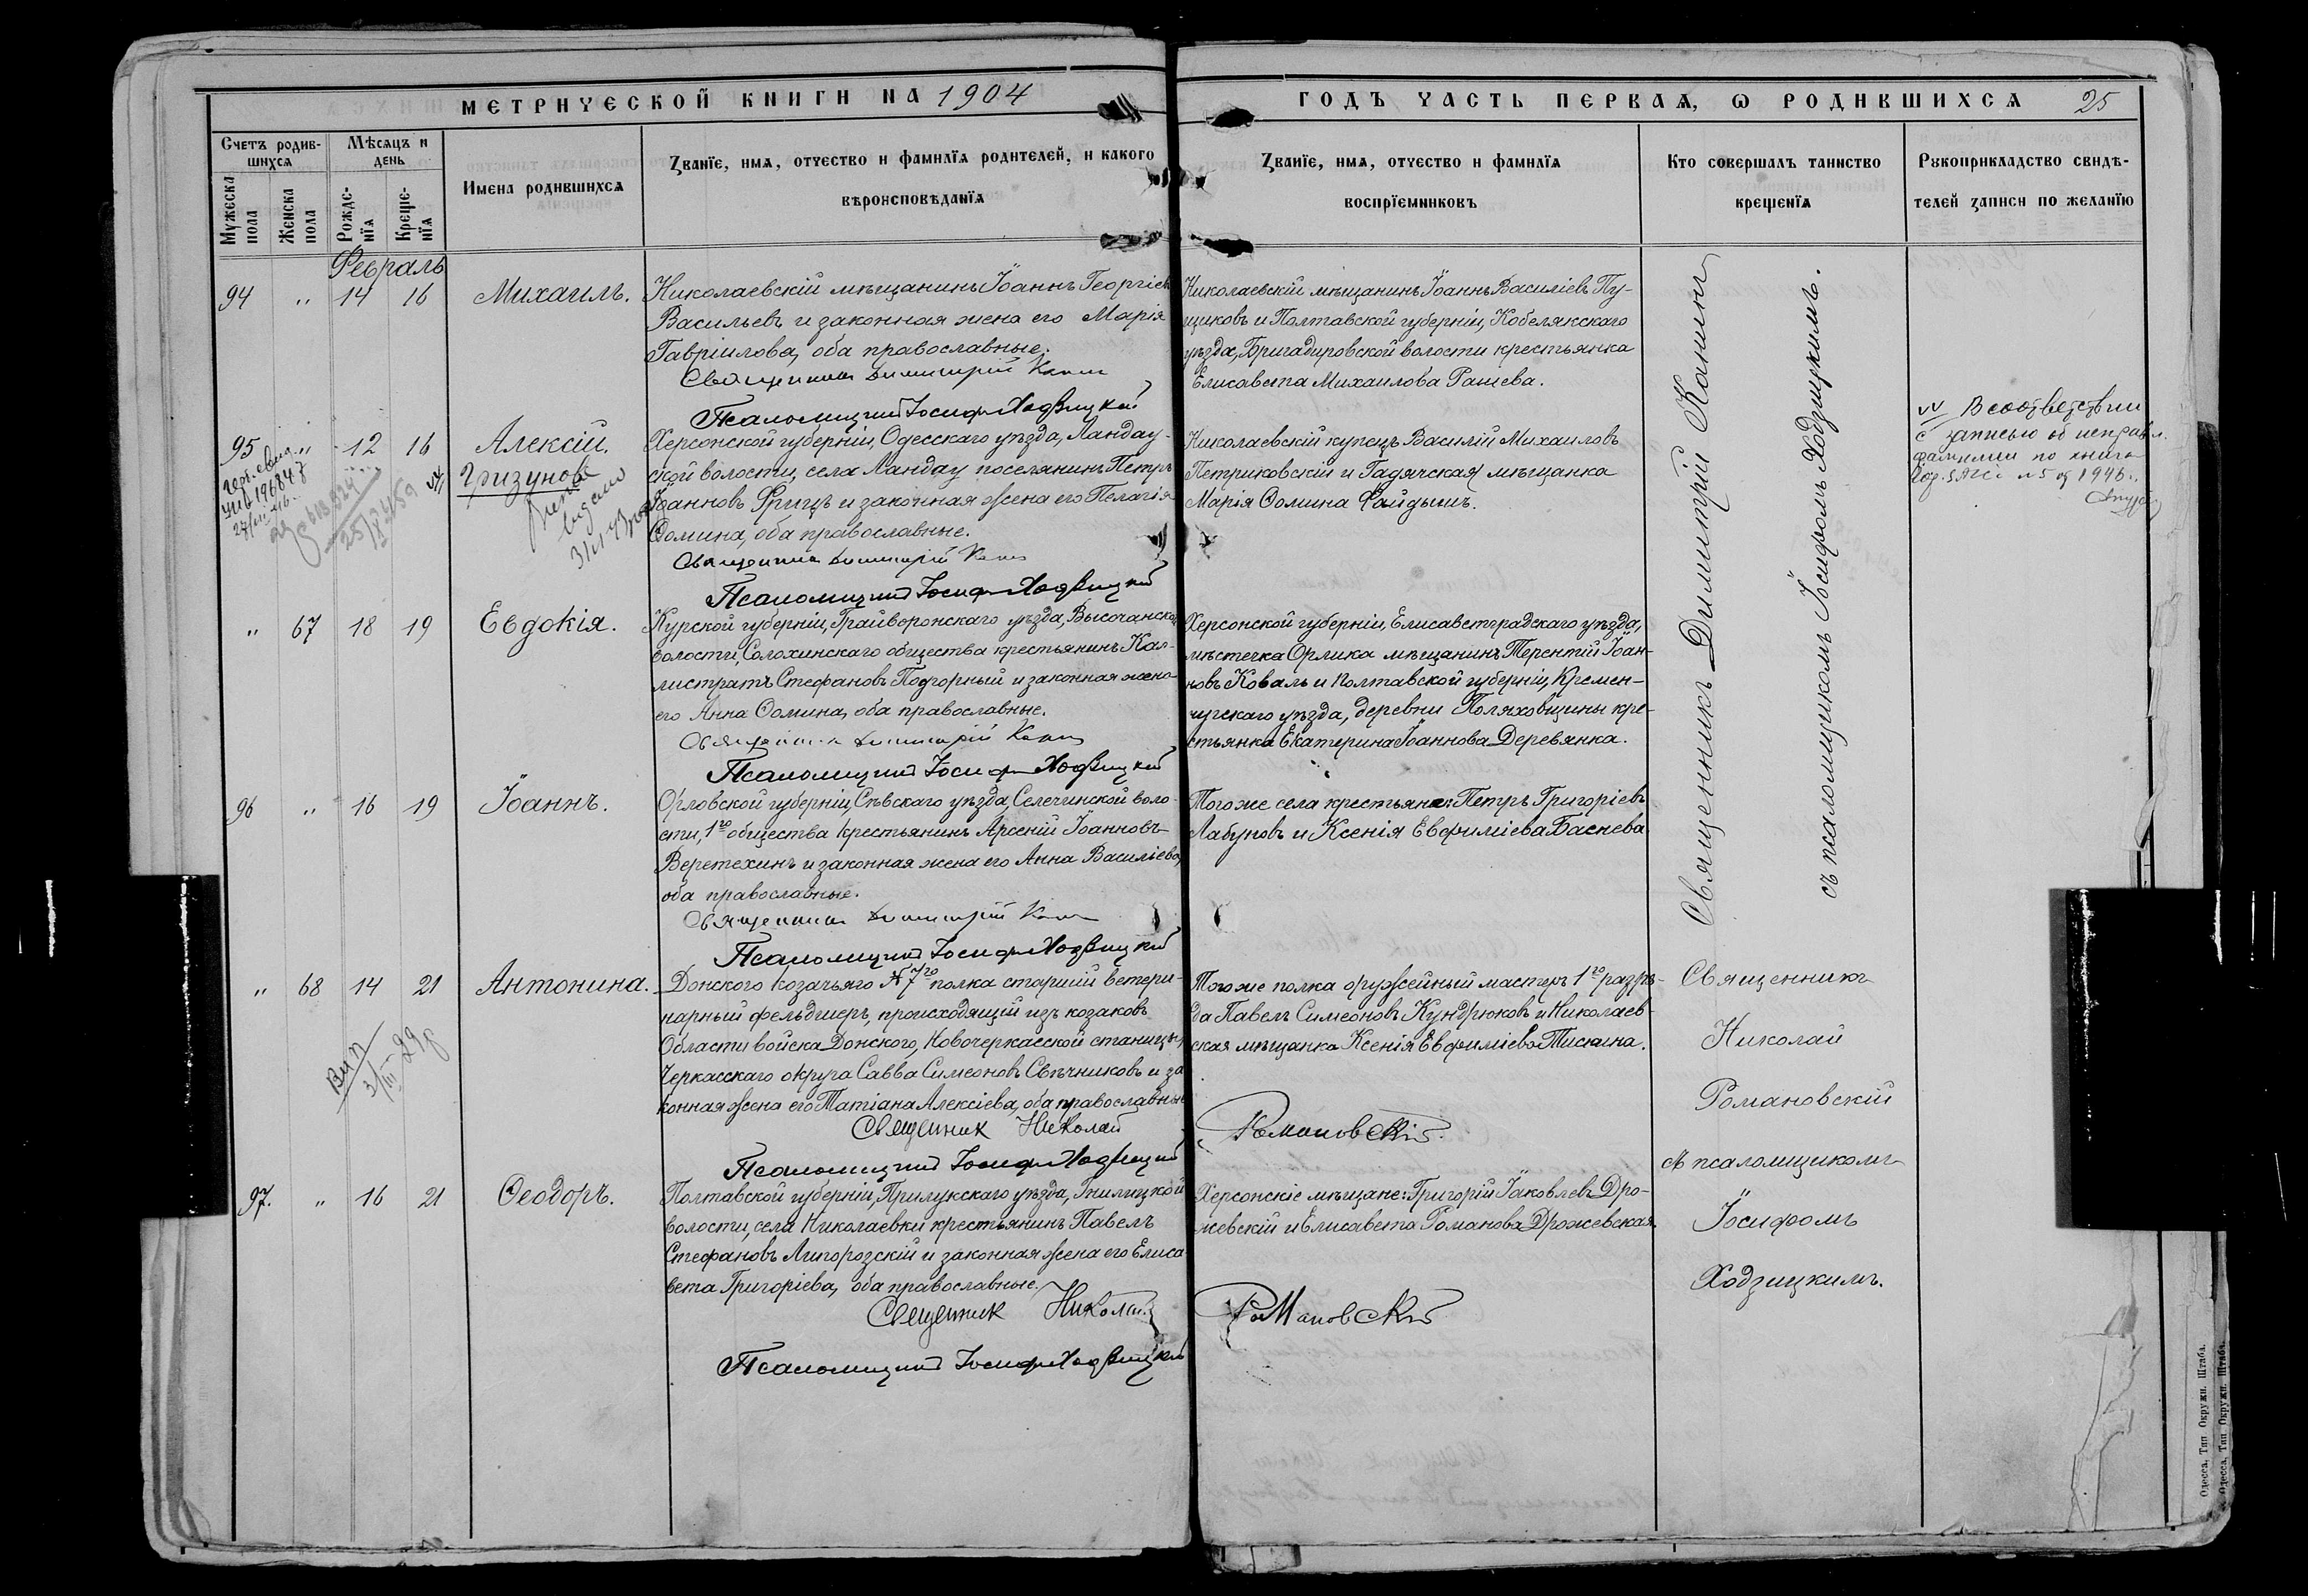 МЕТРИЧЕСКОЙ КНИГИ НА 1904
ГОДЪ ЧАСТЬ ПЕРВАЯ, Ѡ РОДИВШИХСЯ 25
Счетъ родив-
шихся
Мѣсяцъ и
день
Мужеска
пола
Женска
пола
Рожде-
нїя
Креще-
нїя
Имена родившихся
Званїе, имя, отчество и фамилїя родителей, и какого
вѣроисповѣданїя
Званїе, имя, отчество и фамилїя
воспрїемниковъ
Кто совершалъ таинство
крещенїя
Рукоприкладство свидѣ-
телей записи по желанїю
Февраль
94 " 14 16 Михаилъ.
Николаевскій мѣщанинъ Іоаннъ Георгіев
Васильевъ и законная жена его Марія
Гавріилова, оба православные.
Священник Димитрій Канин
Псаломщик Іосиф Ходзицкий
Николаевскій мѣщанинъ Іоаннъ Василіевъ Пу-
щиковъ и Полтавской губерніи, Кобелякскаго
уѣзда, Бригадировской волости крестьянка
Елисавета Михаилова Рашева.
95 " 12 16 Алексій.
Гризунов
25/IX 459
Херсонской губерніи, Одесскаго уѣзда, Ландау-
ской волости, села Ландау поселянинъ Петръ
Іоанновъ Фрицъ и законная жена его Пелагія
Ѳомина, оба православные.
Священник Димитрій Канин
Псаломщик Іосиф Ходзицкий
Николаевскій купецъ Василій Михаиловъ
Петриковскій и Гадячская мѣщанка
Марія Ѳомина Файдышъ.
VV В соответствии
с записью об исправл.
фамилии по книге
" 67 18 19 Евдокія.
Курской губерніи, Грайворонскаго уѣзда, Высочанской
волости, Солохинскаго общества крестьянинъ Кал-
листратъ Стефановъ Подгорный и законная жена
его Анна Ѳомина, оба православные.
Священник Димитрій Канин
Псаломщик Іосиф Ходзицкий
Херсонской губерніи, Елисаветградскаго уѣзда,
мѣстечка Орлика мѣщанинъ Терентій Іоан-
новъ Коваль и Полтавской губерніи, Кремен-
чугскаго уѣзда, деревни Поляховщины кре-
стьянка Екатерина Іоаннова Деревянка.
96 " 16 19 Іоаннъ.
Орловской губерніи, Сѣвскаго уѣзда, Селечинской воло-
сти, 1го общества крестьянинъ Арсеній Іоанновъ
Веретехинъ и законная жена его Анна Василіева,
оба православные.
Священник Димитрій Канин
Псаломщик Іосиф Ходзицкий
Того же села крестьяне: Петръ Григоріевъ
Лабуновъ и Ксенія Евфиміева Баснева
Священникъ Димитрій Канинъ
съ псаломщикомъ Іосифомъ Ходзицкимъ.
" 68 14 21 Антонина.
3/III 29
Донского козачьяго №7го полка старшій ветери-
нарный фельдшеръ, происходящій изъ козаковъ
Области войска Донского, Новочеркасской станицы,
Черкасскаго округа Савва Симеоновъ Свѣчниковъ и за
конная жена его Татіана Алексіева, оба православные
Священик Николай Романовскій
Псаломщик Іосиф Ходзицкий
Того же полка оружейный мастеръ 1го разря-
да Павелъ Симеоновъ Кундрюковъ и Николаев-
ская мѣщанка Ксенія Евфиміева Тискина.
Священникъ
Николай
Романовскій
съ псаломщикомъ
Іосифомъ
Ходзицкимъ.
97. " 16 21 Ѳеодоръ.
Полтавской губерніи, Прилукскаго уѣзда, Гнилицкой
волости, села Николаевки крестьянинъ Павелъ
Стефановъ Лигорозскій и законная жена его Елиса
вета Григоріева, оба православные.
Священик Николай Романовскій
Псаломщик Іосиф Ходзицкий
Херсонскіе мѣщане: Григорій Іаковлевъ Дро-
жевскій и Елисавета Романова Дрожевская.
Одесса, Тип Окружн. Штаба.
Одесса, Тип Окружн. Штаба.